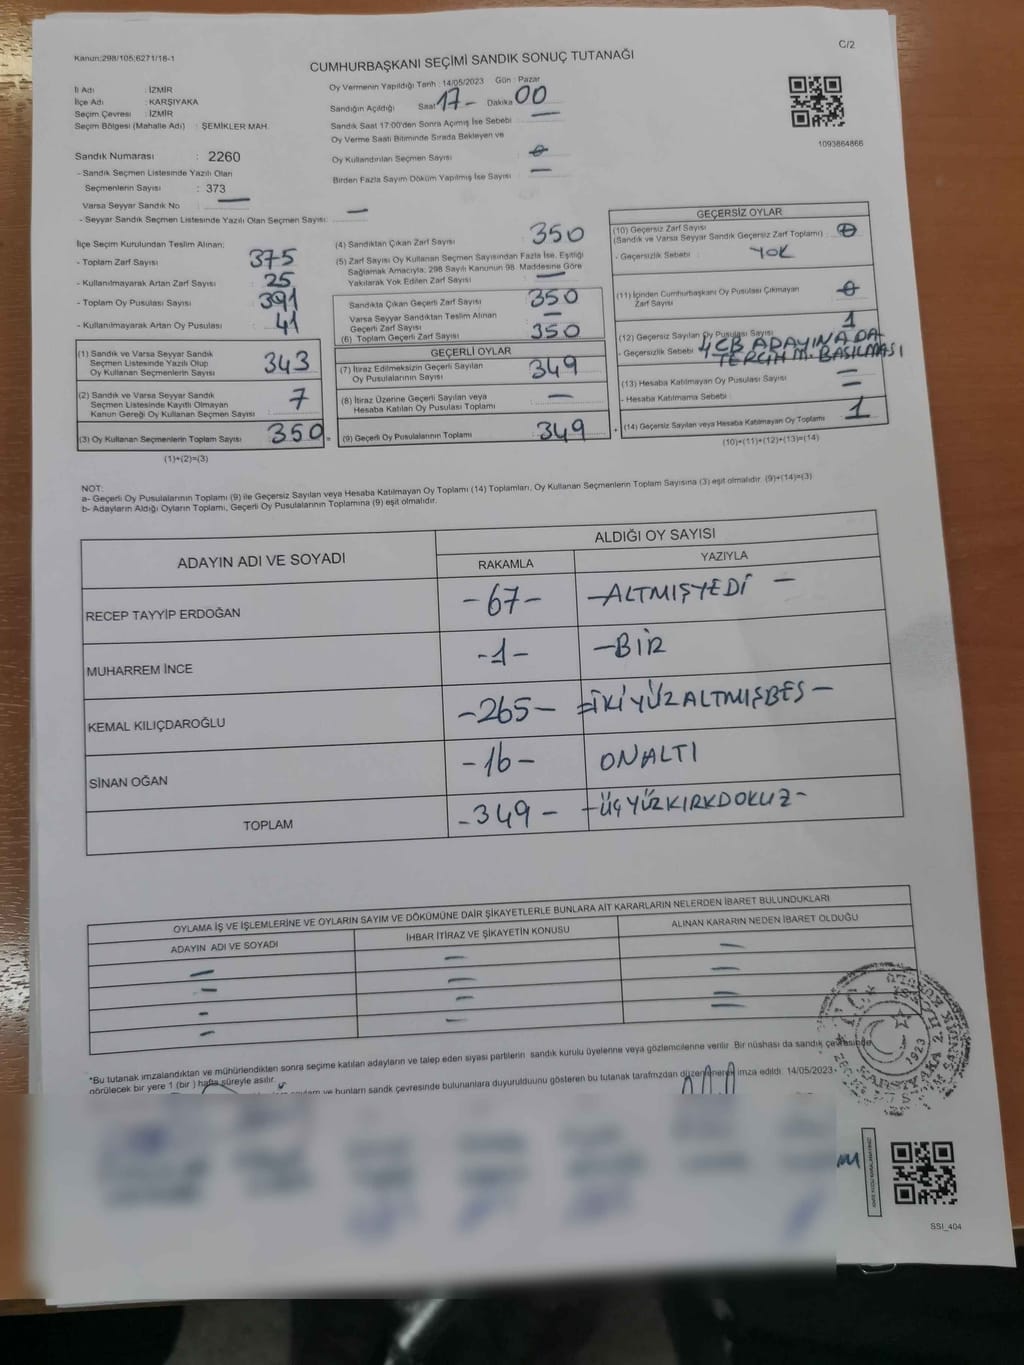 Kanun:298/105;6271/16-1
C/2
CUMHURBAŞKANI SEÇİMİ SANDIK SONUÇ TUTANAĞI
İl Adı : İZMİR
İlçe Adı : KARŞIYAKA
Seçim Çevresi : İZMİR
Seçim Bölgesi (Mahalle Adı) : ŞEMİKLER MAH.
Oy Vermenin Yapıldığı Tarih : 14/05/2023 Gün : Pazar
Sandığın Açıldığı Saat 17 - Dakika 00
Sandık Saat 17:00'den Sonra Açımış İse Sebebi : —
Oy Verme Saati Bitiminde Sırada Bekleyen ve
Oy Kullandırılan Seçmen Sayısı : 0
Birden Fazla Sayım Döküm Yapılmış İse Sayısı : —
1093864866
Sandık Numarası : 2260
- Sandık Seçmen Listesinde Yazılı Olan
Seçmenlerin Sayısı : 373
Varsa Seyyar Sandık No : —
- Seyyar Sandık Seçmen Listesinde Yazılı Olan Seçmen Sayısı: —
İlçe Seçim Kurulundan Teslim Alınan:
- Toplam Zarf Sayısı : 375
- Kullanılmayarak Artan Zarf Sayısı : 25
- Toplam Oy Pusulası Sayısı : 391
- Kullanılmayarak Artan Oy Pusulası : 41
(1) Sandık ve Varsa Seyyar Sandık
Seçmen Listesinde Yazılı Olup
Oy Kullanan Seçmenlerin Sayısı : 343
(2) Sandık ve Varsa Seyyar Sandık
Seçmen Listesinde Kayıtlı Olmayan
Kanun Gereği Oy Kullanan Seçmen Sayısı : 7
(3) Oy Kullanan Seçmenlerin Toplam Sayısı : 350
(1)+(2)=(3)
(4) Sandıktan Çıkan Zarf Sayısı : 350
(5) Zarf Sayısı Oy Kullanan Seçmen Sayısından Fazla İse, Eşitliği
Sağlamak Amacıyla; 298 Sayılı Kanunun 98. Maddesine Göre
Yakılarak Yok Edilen Zarf Sayısı : —
Sandıkta Çıkan Geçerli Zarf Sayısı : 350
Varsa Seyyar Sandıktan Teslim Alınan
Geçerli Zarf Sayısı : —
(6) Toplam Geçerli Zarf Sayısı : 350
GEÇERLİ OYLAR
(7) İtiraz Edilmeksizin Geçerli Sayılan
Oy Pusulalarının Sayısı : 349
(8) İtiraz Üzerine Geçerli Sayılan veya
Hesaba Katılan Oy Pusulası Toplamı : —
(9) Geçerli Oy Pusulalarının Toplamı : 349
GEÇERSİZ OYLAR
(10) Geçersiz Zarf Sayısı
(Sandık ve Varsa Seyyar Sandık Geçersiz Zarf Toplamı) : 0
- Geçersizlik Sebebi : YOK
(11) İçinden Cumhurbaşkanı Oy Pusulası Çıkmayan
Zarf Sayısı : 0
(12) Geçersiz Sayılan Oy Pusulası Sayısı : 1
- Geçersizlik Sebebi : 4 CB ADAYINA DA
TERCİH M. BASILMASI
(13) Hesaba Katılmayan Oy Pusulası Sayısı : —
- Hesaba Katılmama Sebebi : —
(14) Geçersiz Sayılan veya Hesaba Katılmayan Oy Toplamı : 1
(10)+(11)+(12)+(13)=(14)
NOT:
a- Geçerli Oy Pusulalarının Toplamı (9) ile Geçersiz Sayılan veya Hesaba Katılmayan Oy Toplamı (14) Toplamları, Oy Kullanan Seçmenlerin Toplam Sayısına (3) eşit olmalıdır. (9)+(14)=(3)
b- Adayların Aldığı Oyların Toplamı, Geçerli Oy Pusulalarının Toplamına (9) eşit olmalıdır.
ADAYIN ADI VE SOYADI
ALDIĞI OY SAYISI
RAKAMLA YAZIYLA
RECEP TAYYİP ERDOĞAN -67- -ALTMIŞYEDİ -
MUHARREM İNCE -1- -BİR
KEMAL KILIÇDAROĞLU -265- =İKİYÜZALTMIŞBEŞ -
SİNAN OĞAN -16- ONALTI
TOPLAM -349- -ÜÇYÜZKIRKDOKUZ-
OYLAMA İŞ VE İŞLEMLERİNE VE OYLARIN SAYIM VE DÖKÜMÜNE DAİR ŞİKAYETLERLE BUNLARA AİT KARARLARIN NELERDEN İBARET BULUNDUKLARI
ADAYIN ADI VE SOYADI İHBAR İTİRAZ VE ŞİKAYETİN KONUSU ALINAN KARARIN NEDEN İBARET OLDUĞU
*Bu tutanak imzalandıktan ve mühürlendikten sonra seçime katılan adayların ve talep eden siyasi partilerin sandık kurulu üyelerine veya gözlemcilerine verilir. Bir nüshası da sandık çevresinde
görülecek bir yere 1 (bir) hafta süreyle asılır.
ve bunların sandık çevresinde bulunanlara duyurulduğunu gösteren bu tutanak tarafımızdan düzenlenerek imza edildi. 14/05/2023
T.C.
1923
SSI_404